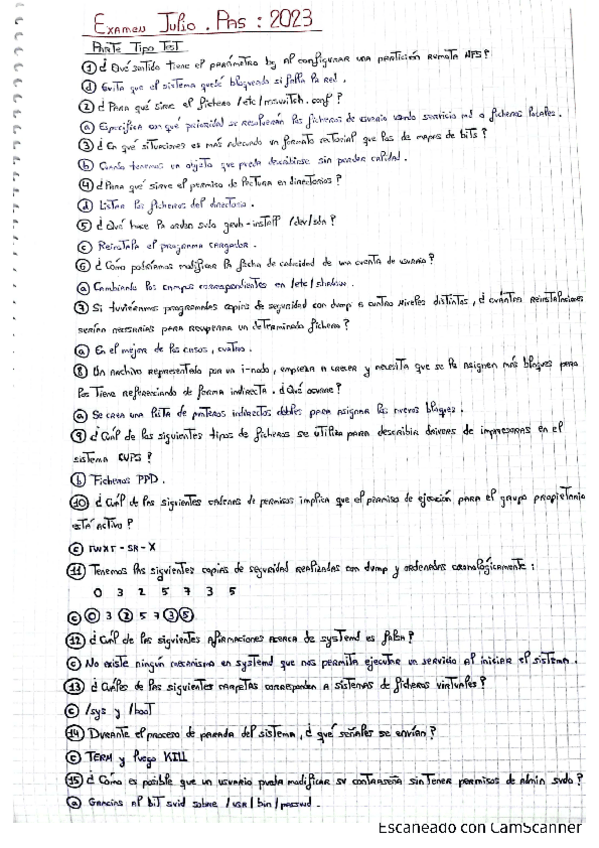 Examen Julio . PAS : 2023
Parte Tipo Test
① ¿Qué sentido tiene el parámetro bg al configurar una partición remota NFS?
ⓓ Evita que el sistema quede bloqueado si falla la red.
② ¿Para qué sirve el fichero /etc/nsswitch.conf?
ⓐ Especifica con qué prioridad se resolverán los ficheros de usuario usando servicio red o ficheros locales.
③ ¿En qué situaciones es más adecuado un formato vectorial que los de mapas de bits?
ⓑ Cuando tenemos un objeto que pueda describirse sin perder calidad.
④ ¿Para qué sirve el permiso de lectura en directorios?
ⓓ Listar los ficheros del directorio.
⑤ ¿Qué hace la orden sudo grub-install /dev/sda?
ⓒ Reinstala el programa cargador.
⑥ ¿Cómo podríamos modificar la fecha de caducidad de una cuenta de usuario?
ⓐ Cambiando los campos correspondientes en /etc/shadow.
⑦ Si tuviéramos programadas copias de seguridad con dump a cuatro niveles distintos, ¿cuántas reinstalaciones
serían necesarias para recuperar un determinado fichero?
ⓐ En el mejor de los casos, cuatro.
⑧ Un archivo representado por un i-nodo, empieza a crecer y necesita que se le asignen más bloques pero
los tiene referenciando de forma indirecta. ¿Qué ocurre?
ⓐ Se crea una lista de punteros indirectos dobles para asignar los nuevos bloques.
⑨ ¿Cuál de los siguientes tipos de ficheros se utiliza para describir drivers de impresoras en el
sistema CUPS?
ⓑ Ficheros PPD.
⑩ ¿Cuál de las siguientes cadenas de permisos implica que el permiso de ejecución para el grupo propietario
está activo?
ⓒ rwxr-sr-x
⑪ Tenemos las siguientes copias de seguridad realizadas con dump y ordenadas cronológicamente:
0 3 2 5 7 3 5
ⓒ ⓪ 3 ② 5 7 ③ ⑤
⑫ ¿Cuál de las siguientes afirmaciones acerca de systemd es falsa?
ⓒ No existe ningún mecanismo en systemd que nos permita ejecutar un servicio al iniciar el sistema.
⑬ ¿Cuáles de las siguientes carpetas corresponden a sistemas de ficheros virtuales?
ⓒ /sys y /boot
⑭ Durante el proceso de parada del sistema, ¿qué señales se envían?
ⓒ TERM y luego KILL
⑮ ¿Cómo es posible que un usuario pueda modificar su contraseña sin tener permisos de admin sudo?
ⓐ Gracias al bit suid sobre /usr/bin/passwd.
Escaneado con CamScanner